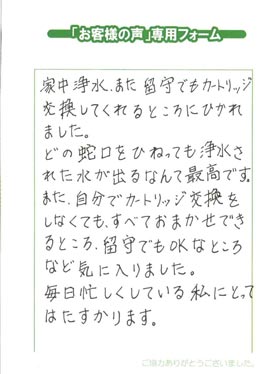 「お客様の声」専用フォーム
家中浄水、また留守でもカートリッジ
交換してくれるところにひかれ
ました。
どの蛇口をひねっても浄水さ
れた水が出るなんて最高です。
また、自分でカートリッジ交換を
しなくても、すべておまかせでき
るところ、留守でもOKなところ
など気に入りました。
毎日忙しくしている私にとって
はたすかります。
ご協力ありがとうございました。